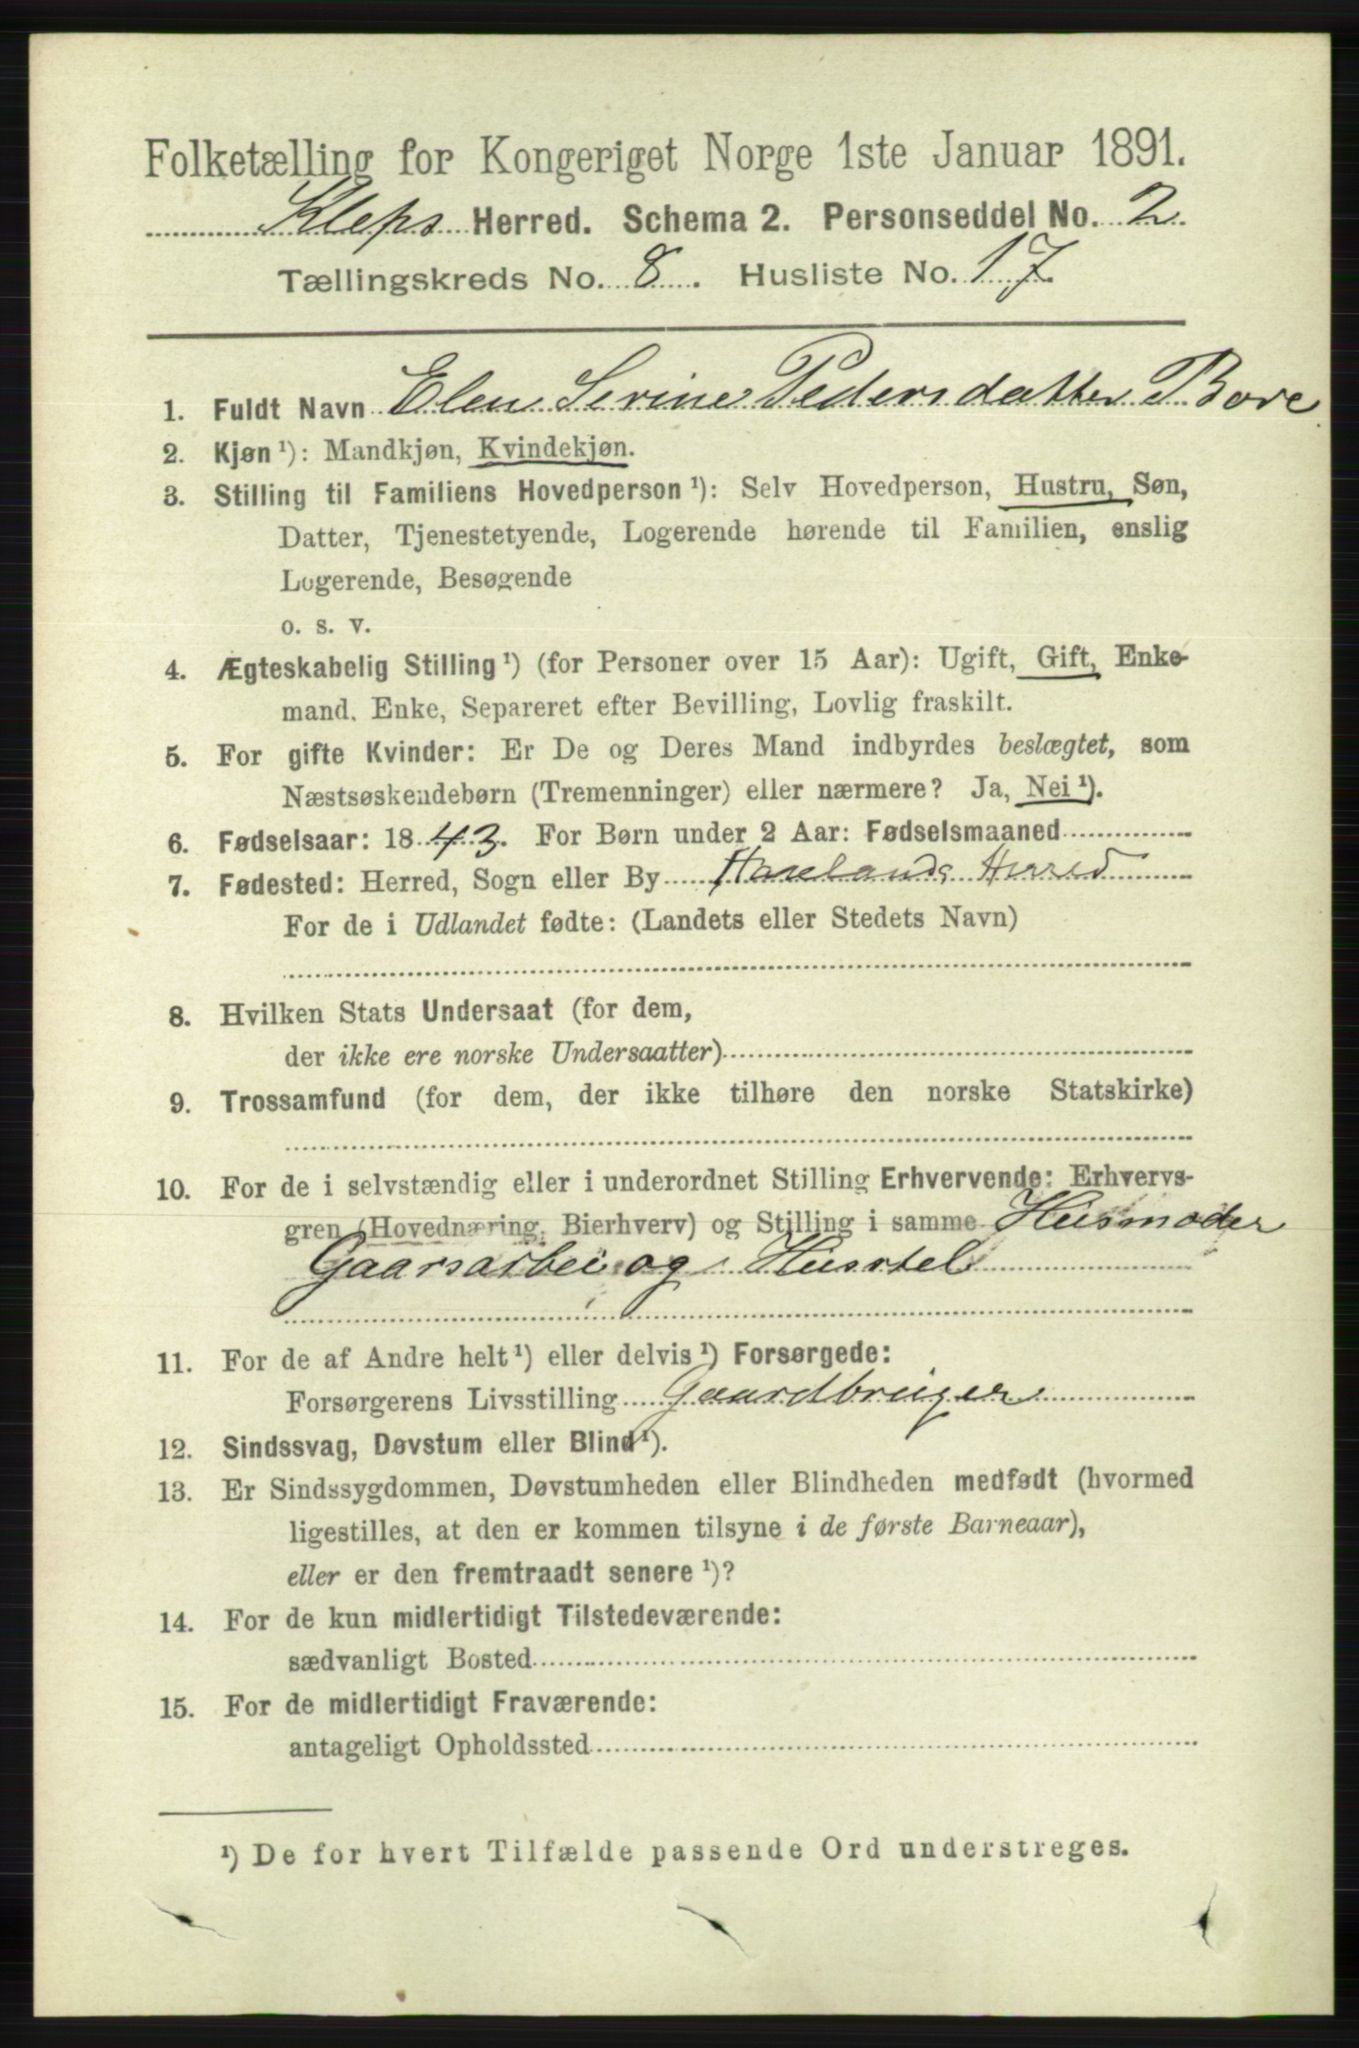 Folketælling for Kongeriget Norge 1ste Januar 1891.
Kleps Herred. Schema 2. Personseddel No. 2
Tællingskreds No. 8. Husliste No. 17
1. Fuldt Navn Elen Serine Pedersdatter Bore
2. Kjøn ¹): Mandkjøn, Kvindekjøn.
3. Stilling til Familiens Hovedperson ¹): Selv Hovedperson, Hustru, Søn,
Datter, Tjenestetyende, Logerende hørende til Familien, enslig
Logerende, Besøgende
o. s. v.
4. Ægteskabelig Stilling ¹) (for Personer over 15 Aar): Ugift, Gift, Enke-
mand, Enke, Separeret efter Bevilling, Lovlig fraskilt.
5. For gifte Kvinder: Er De og Deres Mand indbyrdes beslægtet, som
Næstsøskendebørn (Tremenninger) eller nærmere? Ja, Nei ¹).
6. Fødselsaar: 1843. For Børn under 2 Aar: Fødselsmaaned
7. Fødested: Herred, Sogn eller By Haalands Herred
For de i Udlandet fødte: (Landets eller Stedets Navn)
8. Hvilken Stats Undersaat (for dem,
der ikke ere norske Undersaatter)
9. Trossamfund (for dem, der ikke tilhøre den norske Statskirke)
10. For de i selvstændig eller i underordnet Stilling Erhvervende: Erhvervs-
gren (Hovednæring, Bierhverv) og Stilling i samme Husmoder
Gaarsarbei og Husstel
11. For de af Andre helt ¹) eller delvis ¹) Forsørgede:
Forsørgerens Livsstilling Gaardbruger
12. Sindssvag, Døvstum eller Blind ¹).
13. Er Sindssygdommen, Døvstumheden eller Blindheden medfødt (hvormed
ligestilles, at den er kommen tilsyne i de første Barneaar),
eller er den fremtraadt senere ¹)?
14. For de kun midlertidigt Tilstedeværende:
sædvanligt Bosted
15. For de midlertidigt Fraværende:
antageligt Opholdssted
¹) De for hvert Tilfælde passende Ord understreges.